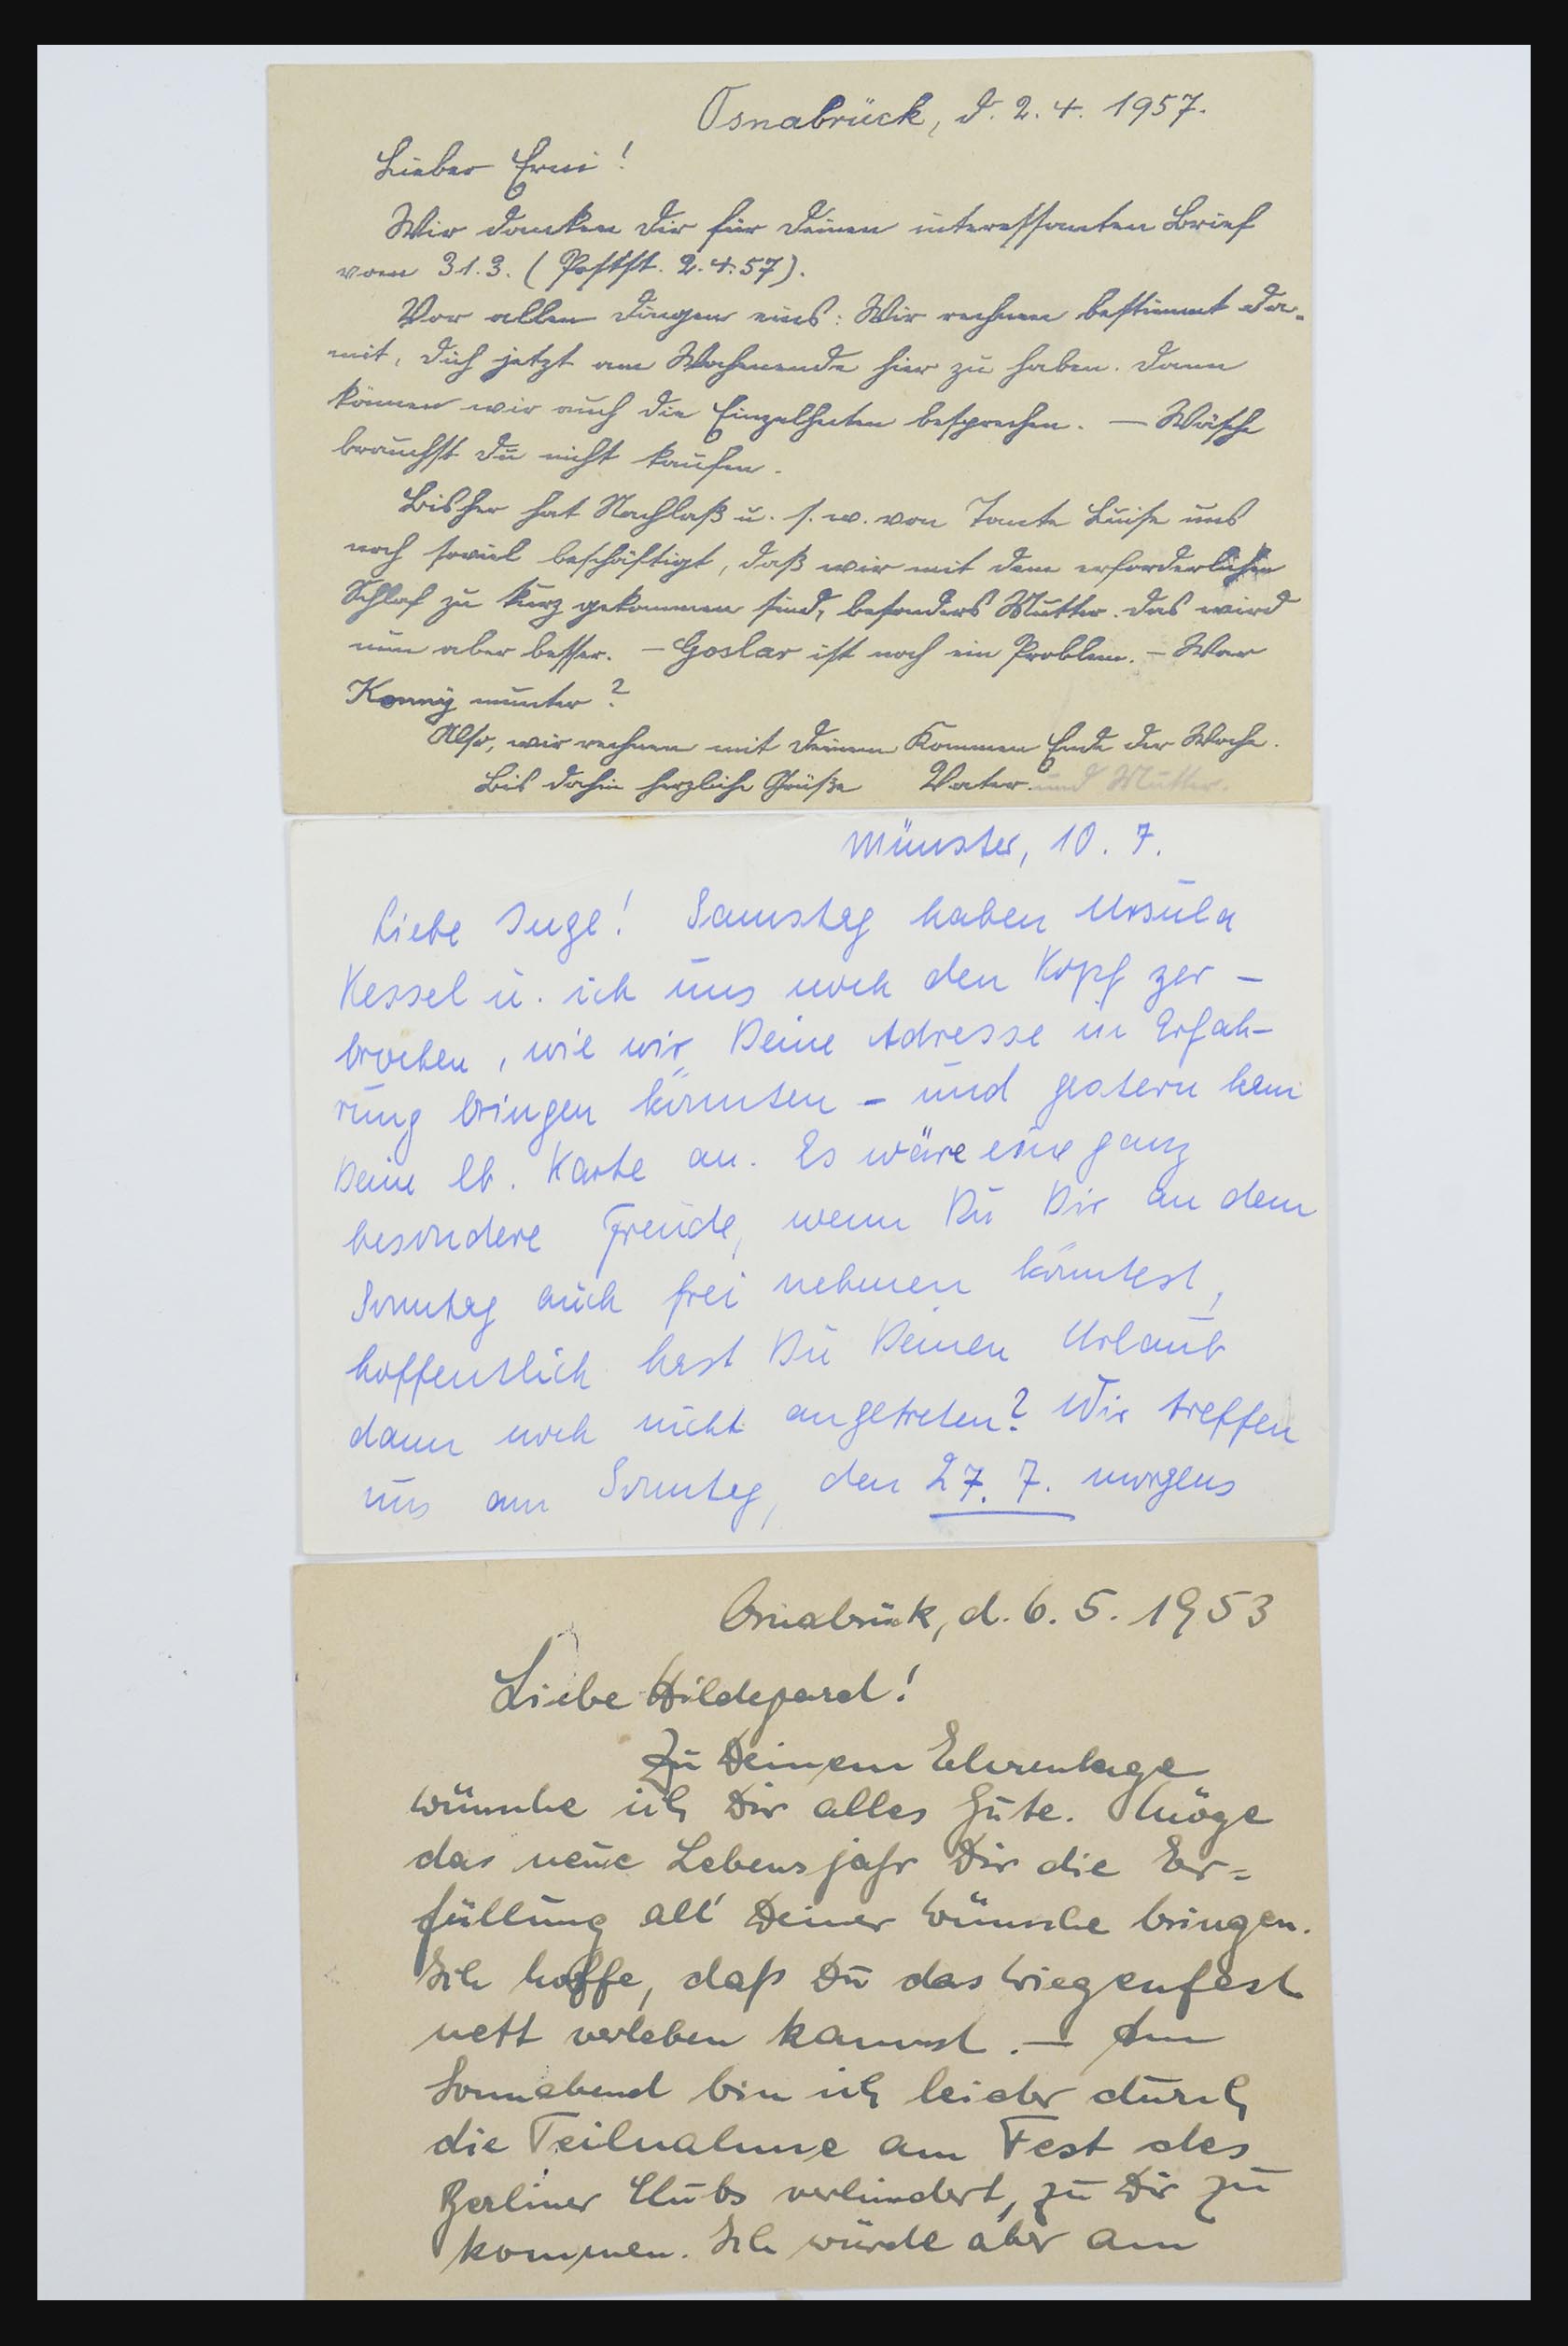 Osnabrück, d. 2. 4. 1957.
Lieber Erni!
Wir danken Dir für Deinen interessanten Brief
vom 31.3. (Postst. 2.4.57).
Vor allen Dingen eins: Wir rechnen bestimmt da-
mit, Dich jetzt am Wochenende hier zu haben. Dann
können wir auch die Einzelheiten besprechen. — Wäsche
brauchst Du nicht kaufen.
Bisher hat Nachlaß u. s. w. von Tante Luise uns
noch soviel beschäftigt, daß wir mit dem erforderlichen
Schlaf zu kurz gekommen sind, besonders Mutter. Das wird
nun aber besser. — Goslar ist noch ein Problem. — War
Konny munter?
Also, wir rechnen mit Deinem Kommen Ende der Woche.
Bis dahin herzliche Grüße Vater und Mutter.
Münster, 10. 7.
Liebe Inge! Samstag haben Ursula
Kessel u. ich uns noch den Kopf zer-
brochen, wie wir Deine Adresse in Erfah-
rung bringen könnten - und gestern kam
Deine lb. Karte an. Es wäre eine ganz
besondere Freude, wenn Du Dir an dem
Sonntag auch frei nehmen könntest,
hoffentlich hast Du Deinen Urlaub
dann noch nicht angetreten? Wir treffen
uns am Sonntag, den 27. 7. morgens
Osnabrück, d. 6. 5. 1953
Liebe Hildegard!
Zu Deinem Ehrentage
wünsche ich Dir alles Gute. Möge
das neue Lebensjahr Dir die Er=
füllung all' Deiner Wünsche bringen.
Ich hoffe, daß Du das Wiegenfest
nett verleben kannst. — Am
Sonnabend bin ich leider durch
die Teilnahme am Fest des
Berliner Clubs verhindert, zu Dir zu
kommen. Ich würde aber am